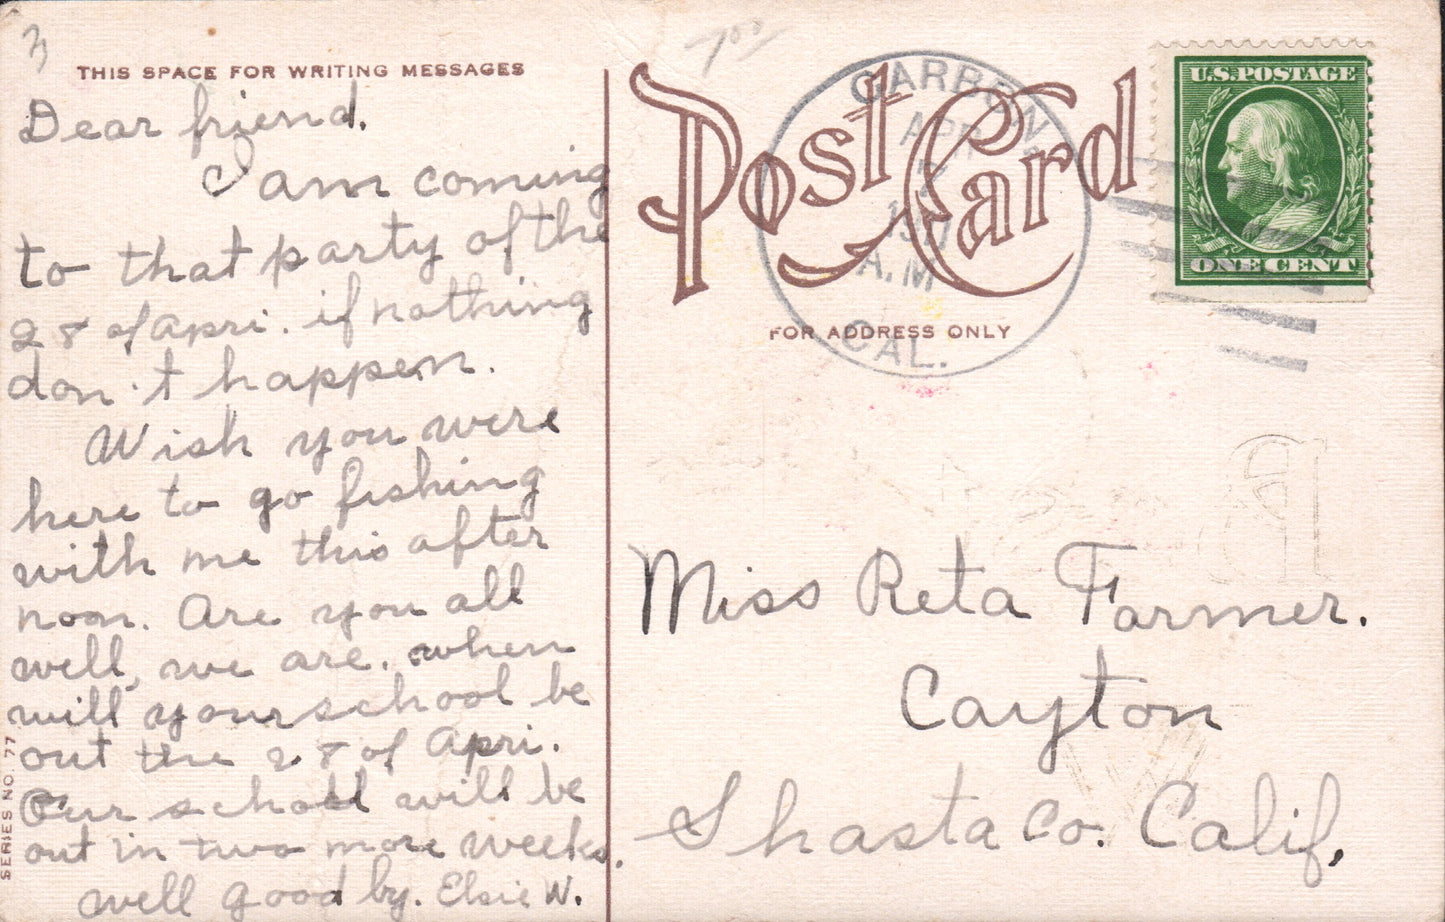 3
7.00
THIS SPACE FOR WRITING MESSAGES
Dear friend.
I am coming
to that party of the
28 of Apri. if nothing
don't happen.
Wish you were
here to go fishing
with me this after
noon. Are you all
well, we are. when
will your school be
out the 28 of Apri.
Our school will be
out in two more weeks.
well good by. Elsie W.
SERIES NO. 77
Post Card
FOR ADDRESS ONLY
CARBON,
APR
7
A.M
CAL.
U.S. POSTAGE
ONE CENT
Miss Reta Farmer.
Cayton
Shasta Co. Calif,